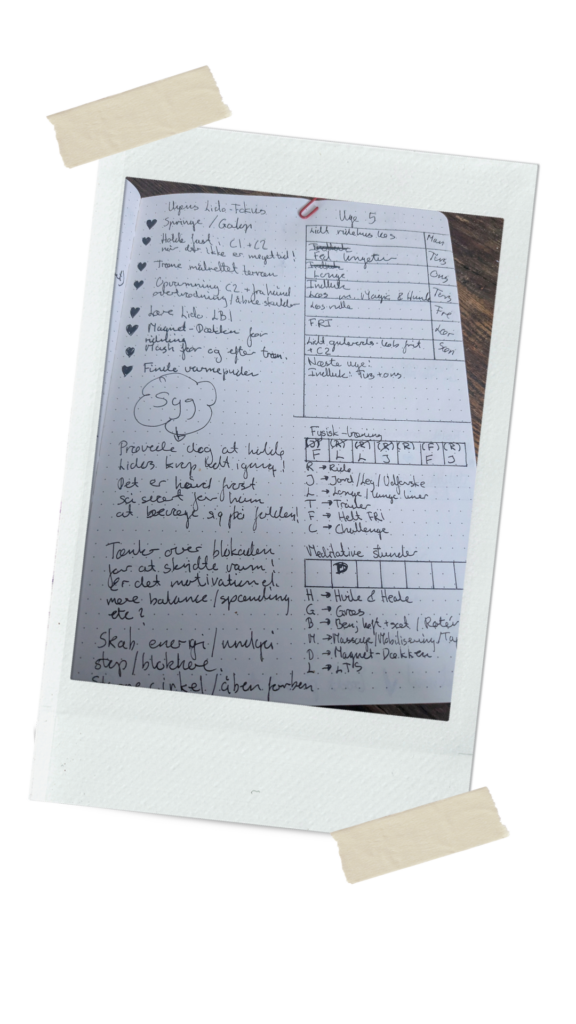 Ugens Lido-Fokus
Springe / Galop
Holde fast i C1 + C2
når der ikke er meget tid!
Træne målrettet terræn
Opvarmning C2 + frahånd
overtrædning /
Lave Lido LB1
Magnet-Dækken før
ridning
Mash før og efter træn.
Finde varmepuder
Syg
Prøvede dog at holde
Lidos krop lidt igang!
Det er hård frost
så svært for ham
at bevæge sig på folden!
Tænker over blokaden
for at skridte varm!
Er det motivation el.
mere balance/spænding
etc?
Skab energi/undgå
stop/blokere.
cirkel/åben for ben
Uge 5
Lidt ridehus løs
Man
Føl longetur
Tirs
Longe
Ons
Indlluk
Løs m. Magic & Hunt
Tors
Løs ridle
Fre
FRI
Lør
Lidt løb frit
+ C2
Søn
Næste uge:
Indlluk: Tirs + ons
Fysisk-træning
(J) (R) (R) (R) (R) (F) (R)
F L L J F J
R → Ride
J → Jord/Leg/Udfordre
L → Longe/Lange liner
T → Trailer
F → Helt FRI
C → Challenge
Meditative stunder
D
H → Hvile & Heale
G → Græs
B → Benj løft + sæt /
M → Massage/Mobilisering/Tap
D → Magnet-Dækken
L → LTS